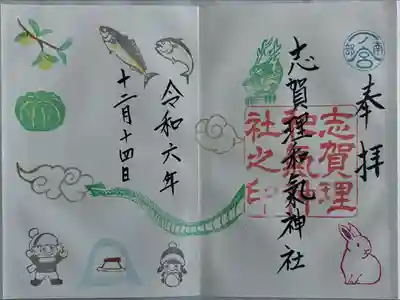 南部一ノ宮
奉拝
志賀理和氣神社
志賀理
和氣神
社之印
令和六年
十二月十四日